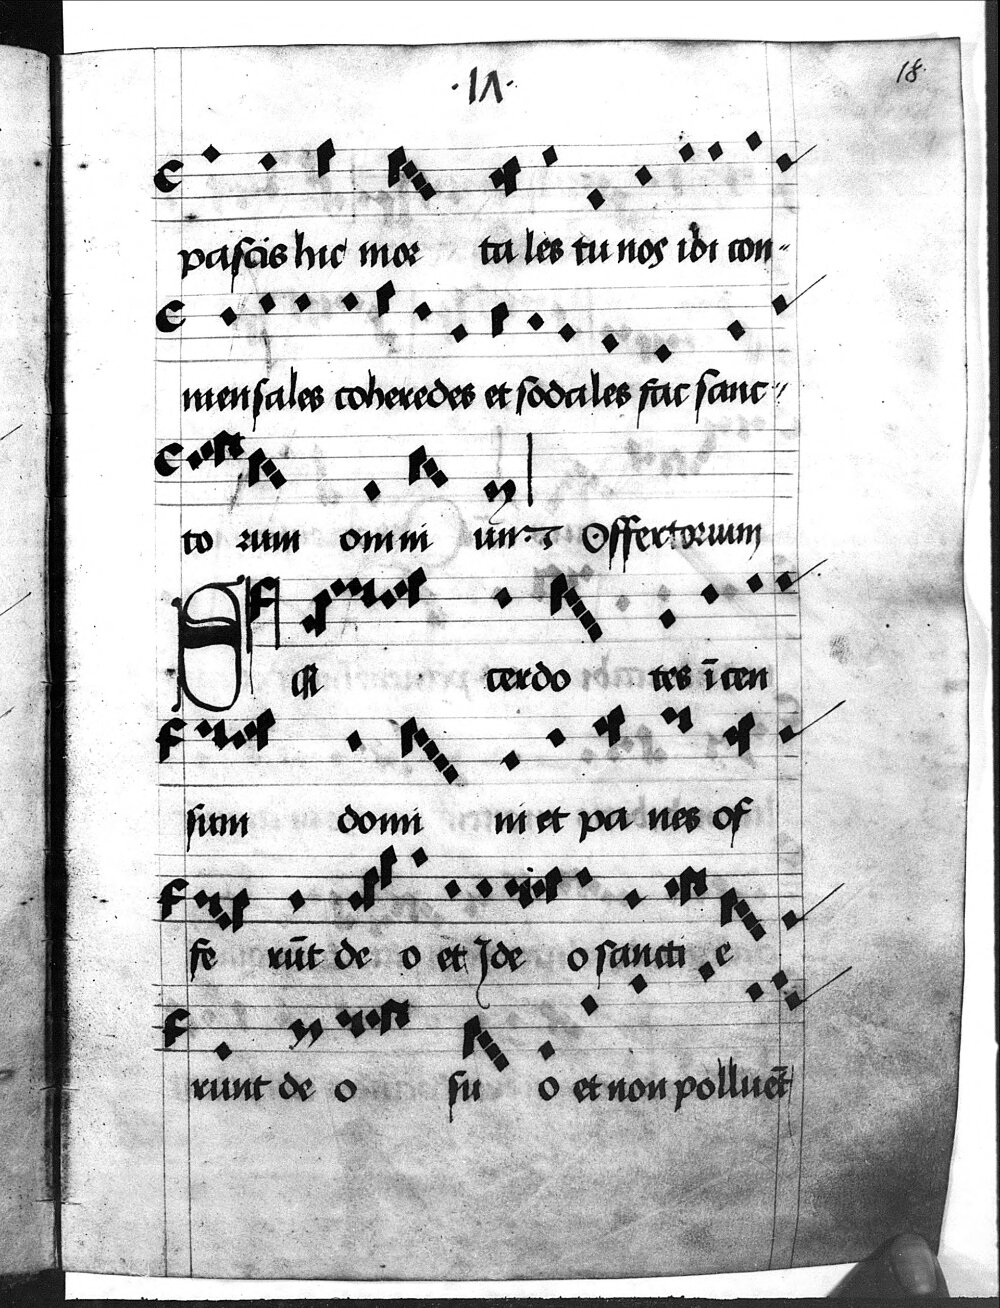 ·IΛ·
18
pascis hic mor ta les tu nos ibi con-
mensales coheredes et sodales fac sanc-
to rum omni um Offertorium
Sa cerdo tes īcen
sum domi ni et pa nes of
fe rūt de o et Ide o sancti e
runt de o su o et non polluēt